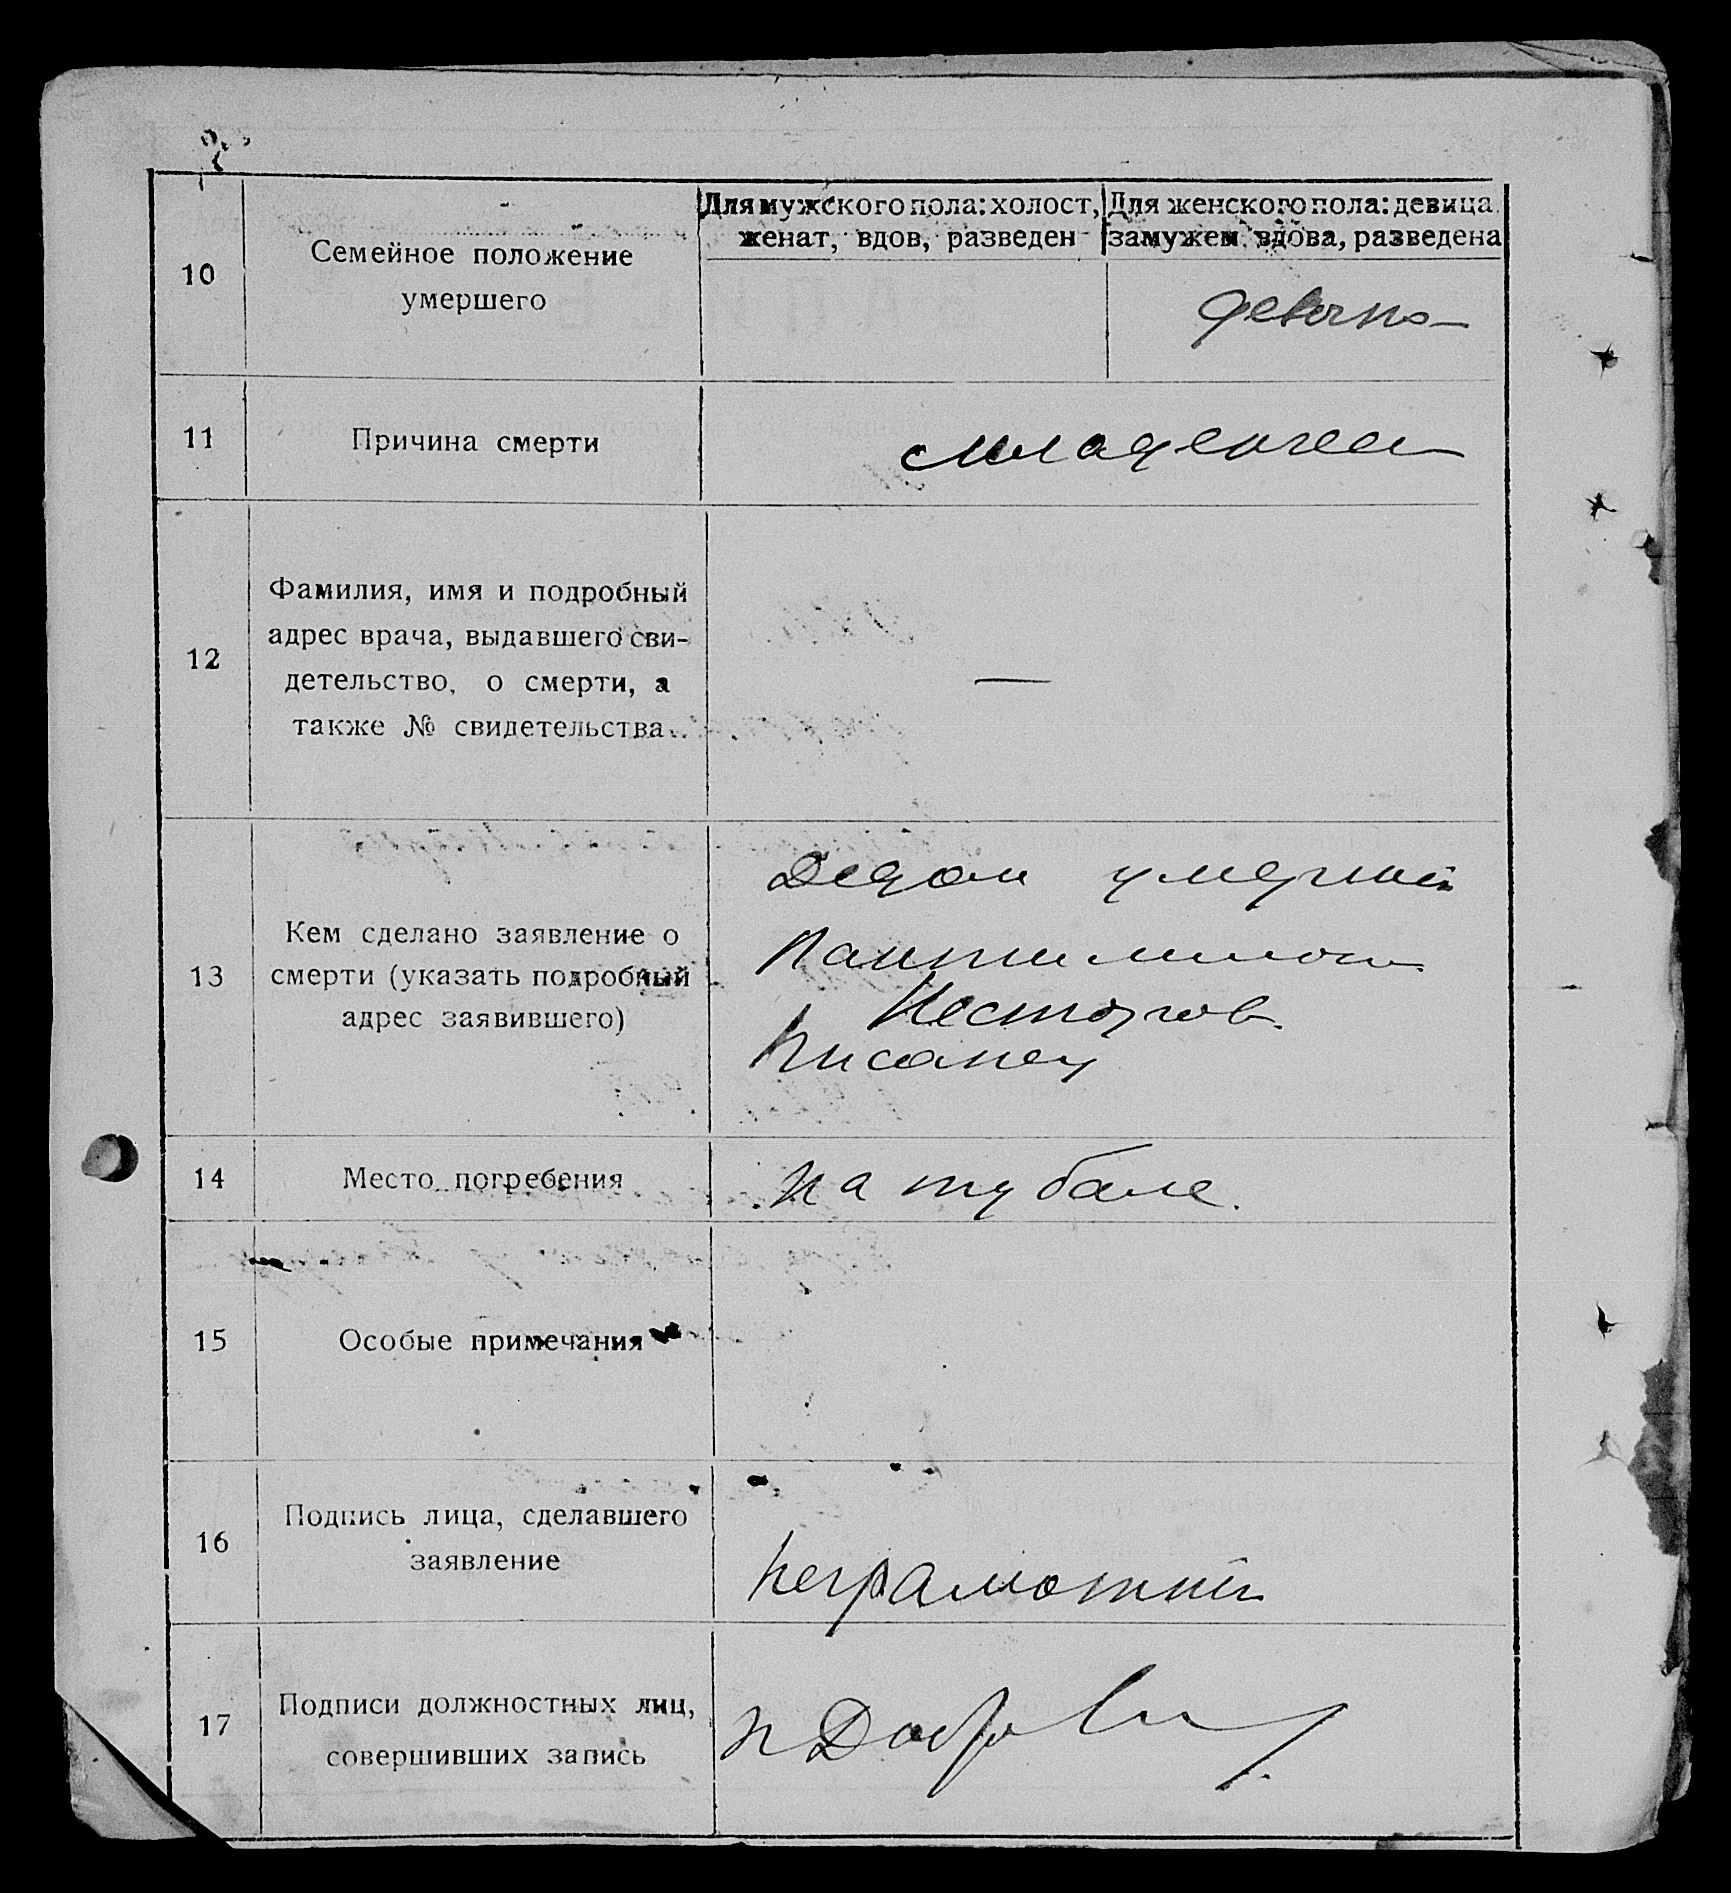 10
Семейное положение
умершего
Для мужского пола: холост,
женат, вдов, разведен
Для женского пола: девица
замужем вдова, разведена
11
Причина смерти
12
Фамилия, имя и подробный
адрес врача, выдавшего сви-
детельство, о смерти, а
также № свидетельства
—
13
Кем сделано заявление о
смерти (указать подробный
адрес заявившего)
Дедом умершей
Нестеров
Писанец
14
Место погребения
на тубале.
15
Особые примечания
16
Подпись лица, сделавшего
заявление
неграмотный
17
Подписи должностных лиц,
совершивших запись